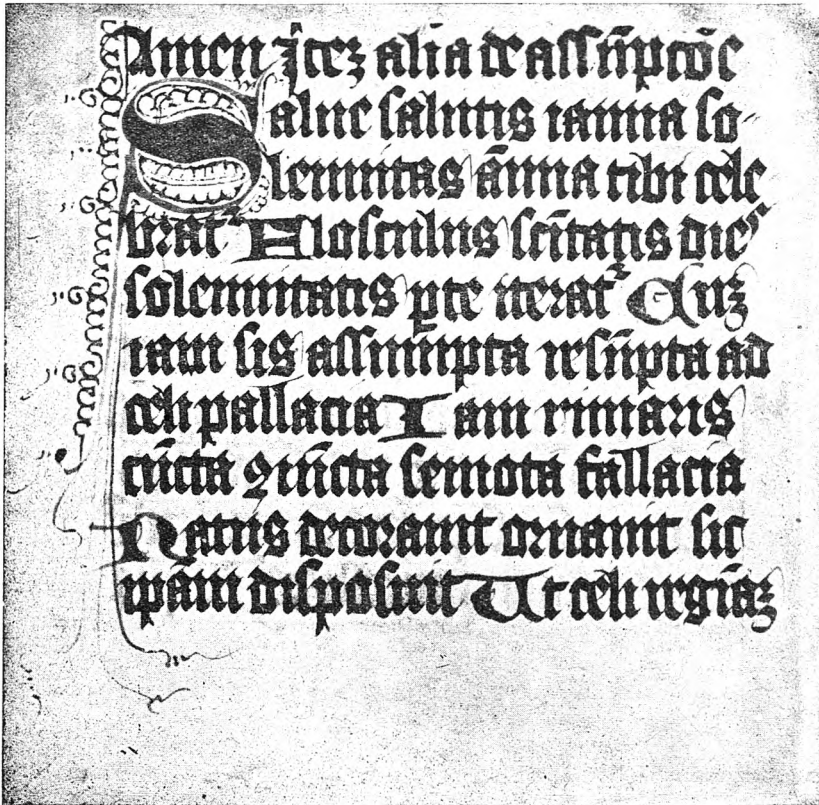 Amen Itez alia de assūpcōe
Salue salutis ianua so-
lemnitas ānua tibi cele
brat᷑ Flosculus sc̄itatis dies
solemnitatis ꝑte iterat᷑ Cuꝫ
iam sis assumpta resūpta ad
celi pallacia Iam rimaris
cūcta ꝯiūcta semota fallacia
Natus decorauit ornauit sic
ipam disposuit Ut celi regiaꝫ